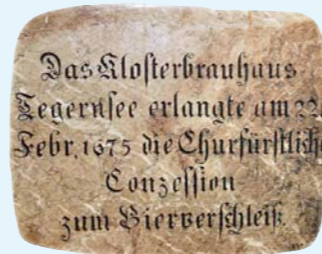 Das Klosterbrauhaus
Tegernsee erlangte am 22.
Febr. 1675 die Churfürstliche
Conzession
zum Bierverschleiß.